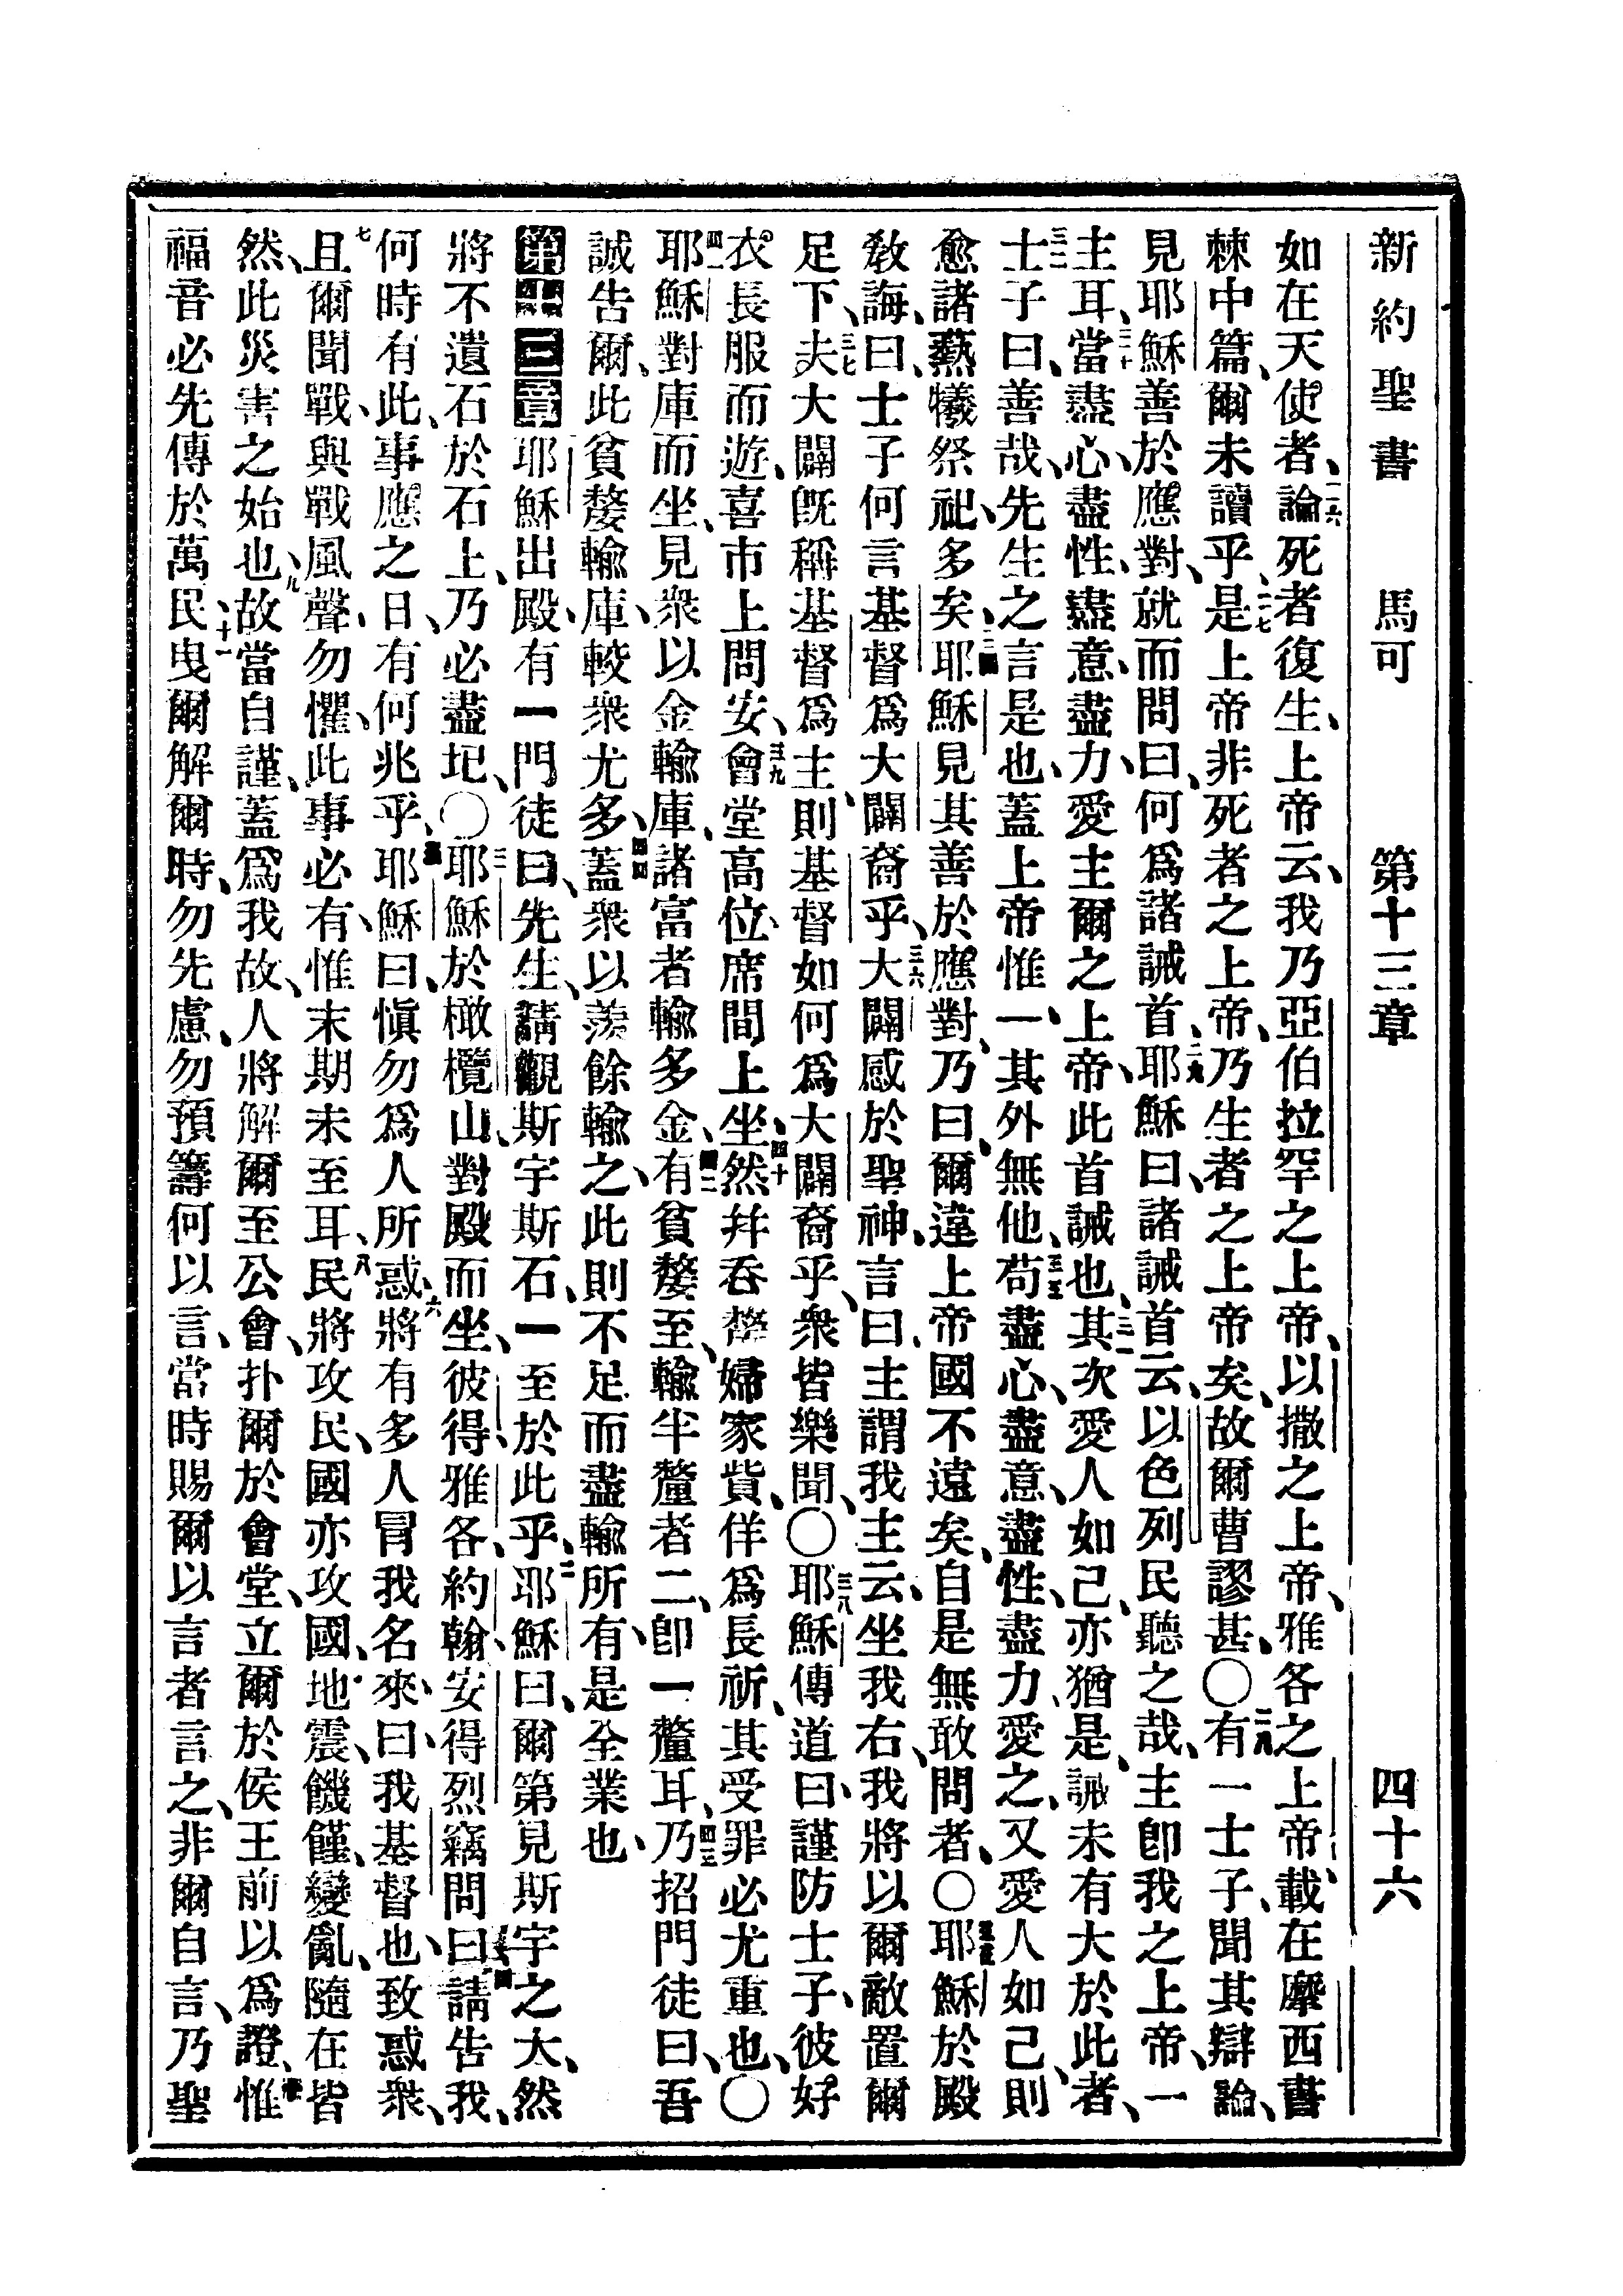 新約聖書 馬可 第十三章 四十六
如在天使者、二六論死者復生、上帝云、我乃亞伯拉罕之上帝、以撒之上帝、雅各之上帝、載在摩西書
棘中篇、爾未讀乎、二七是上帝非死者之上帝、乃生者之上帝矣、故爾曹謬甚、〇二八有一士子、聞其辯論、
見耶穌善於應對、就而問曰、何爲諸誡首、二九耶穌曰、諸誡首云、以色列民聽之哉、主卽我之上帝、一
主耳、三十當盡心、盡性、盡意、盡力、愛主爾之上帝、此首誡也、三一其次愛人如己、亦猶是、誡未有大於此者、
三二士子曰、善哉、先生之言是也、蓋上帝惟一、其外無他、三三苟盡心、盡意、盡性、盡力、愛之、又愛人如己、則
愈諸燕犧祭祀、多矣、三四耶穌見其善於應對、乃曰、爾違上帝國不遠矣、自是無敢問者、〇三五耶穌於殿
敎誨、曰、士子何言基督爲大闢裔乎、三六大闢感於聖神、言曰、主謂我主云、坐我右、我將以爾敵置爾
足下、三七夫大闢旣稱基督爲主、則基督如何爲大闢裔乎、衆皆樂聞、〇三八耶穌傳道曰、謹防士子、彼好
衣長服而遊、喜市上問安、三九會堂高位、席間上坐、四十然幷吞嫠婦家貲、佯爲長祈、其受罪必尤重也、〇
四一耶穌對庫而坐、見衆以金輸庫、諸富者輸多金、四二有貧嫠至、輸半釐者二、卽一釐耳、四三乃招門徒曰、吾
誠告爾、此貧嫠輸庫、較衆尤多、四四蓋衆以羨餘輸之、此則不足而盡輸所有、是全業也、
第十三章耶穌出殿、有一門徒曰、先生、請觀斯宇斯石、一至於此乎、二耶穌曰、爾第見斯宇之大、然
將不遺石於石上、乃必盡圮、〇三耶穌於橄欖山、對殿而坐、彼得、雅各、約翰、安得烈竊問曰、四請告我、
何時有此、此事應之日、有何兆乎、五耶穌曰、愼勿爲人所惑、六將有多人冒我名來、曰、我基督也、致惑衆、
七且爾聞戰、與戰風聲、勿懼、此事必有、惟末期未至耳、八民將攻民、國亦攻國、地震、饑饉、變亂、隨在皆
然、此災害之始也、九故當自謹、蓋爲我故、人將解爾至公會、扑爾於會堂、立爾於侯王前以爲證、十惟
福音必先傳於萬民、十一曳爾解爾時、勿先慮、勿預籌何以言、當時賜爾以言者言之、非爾自言、乃聖